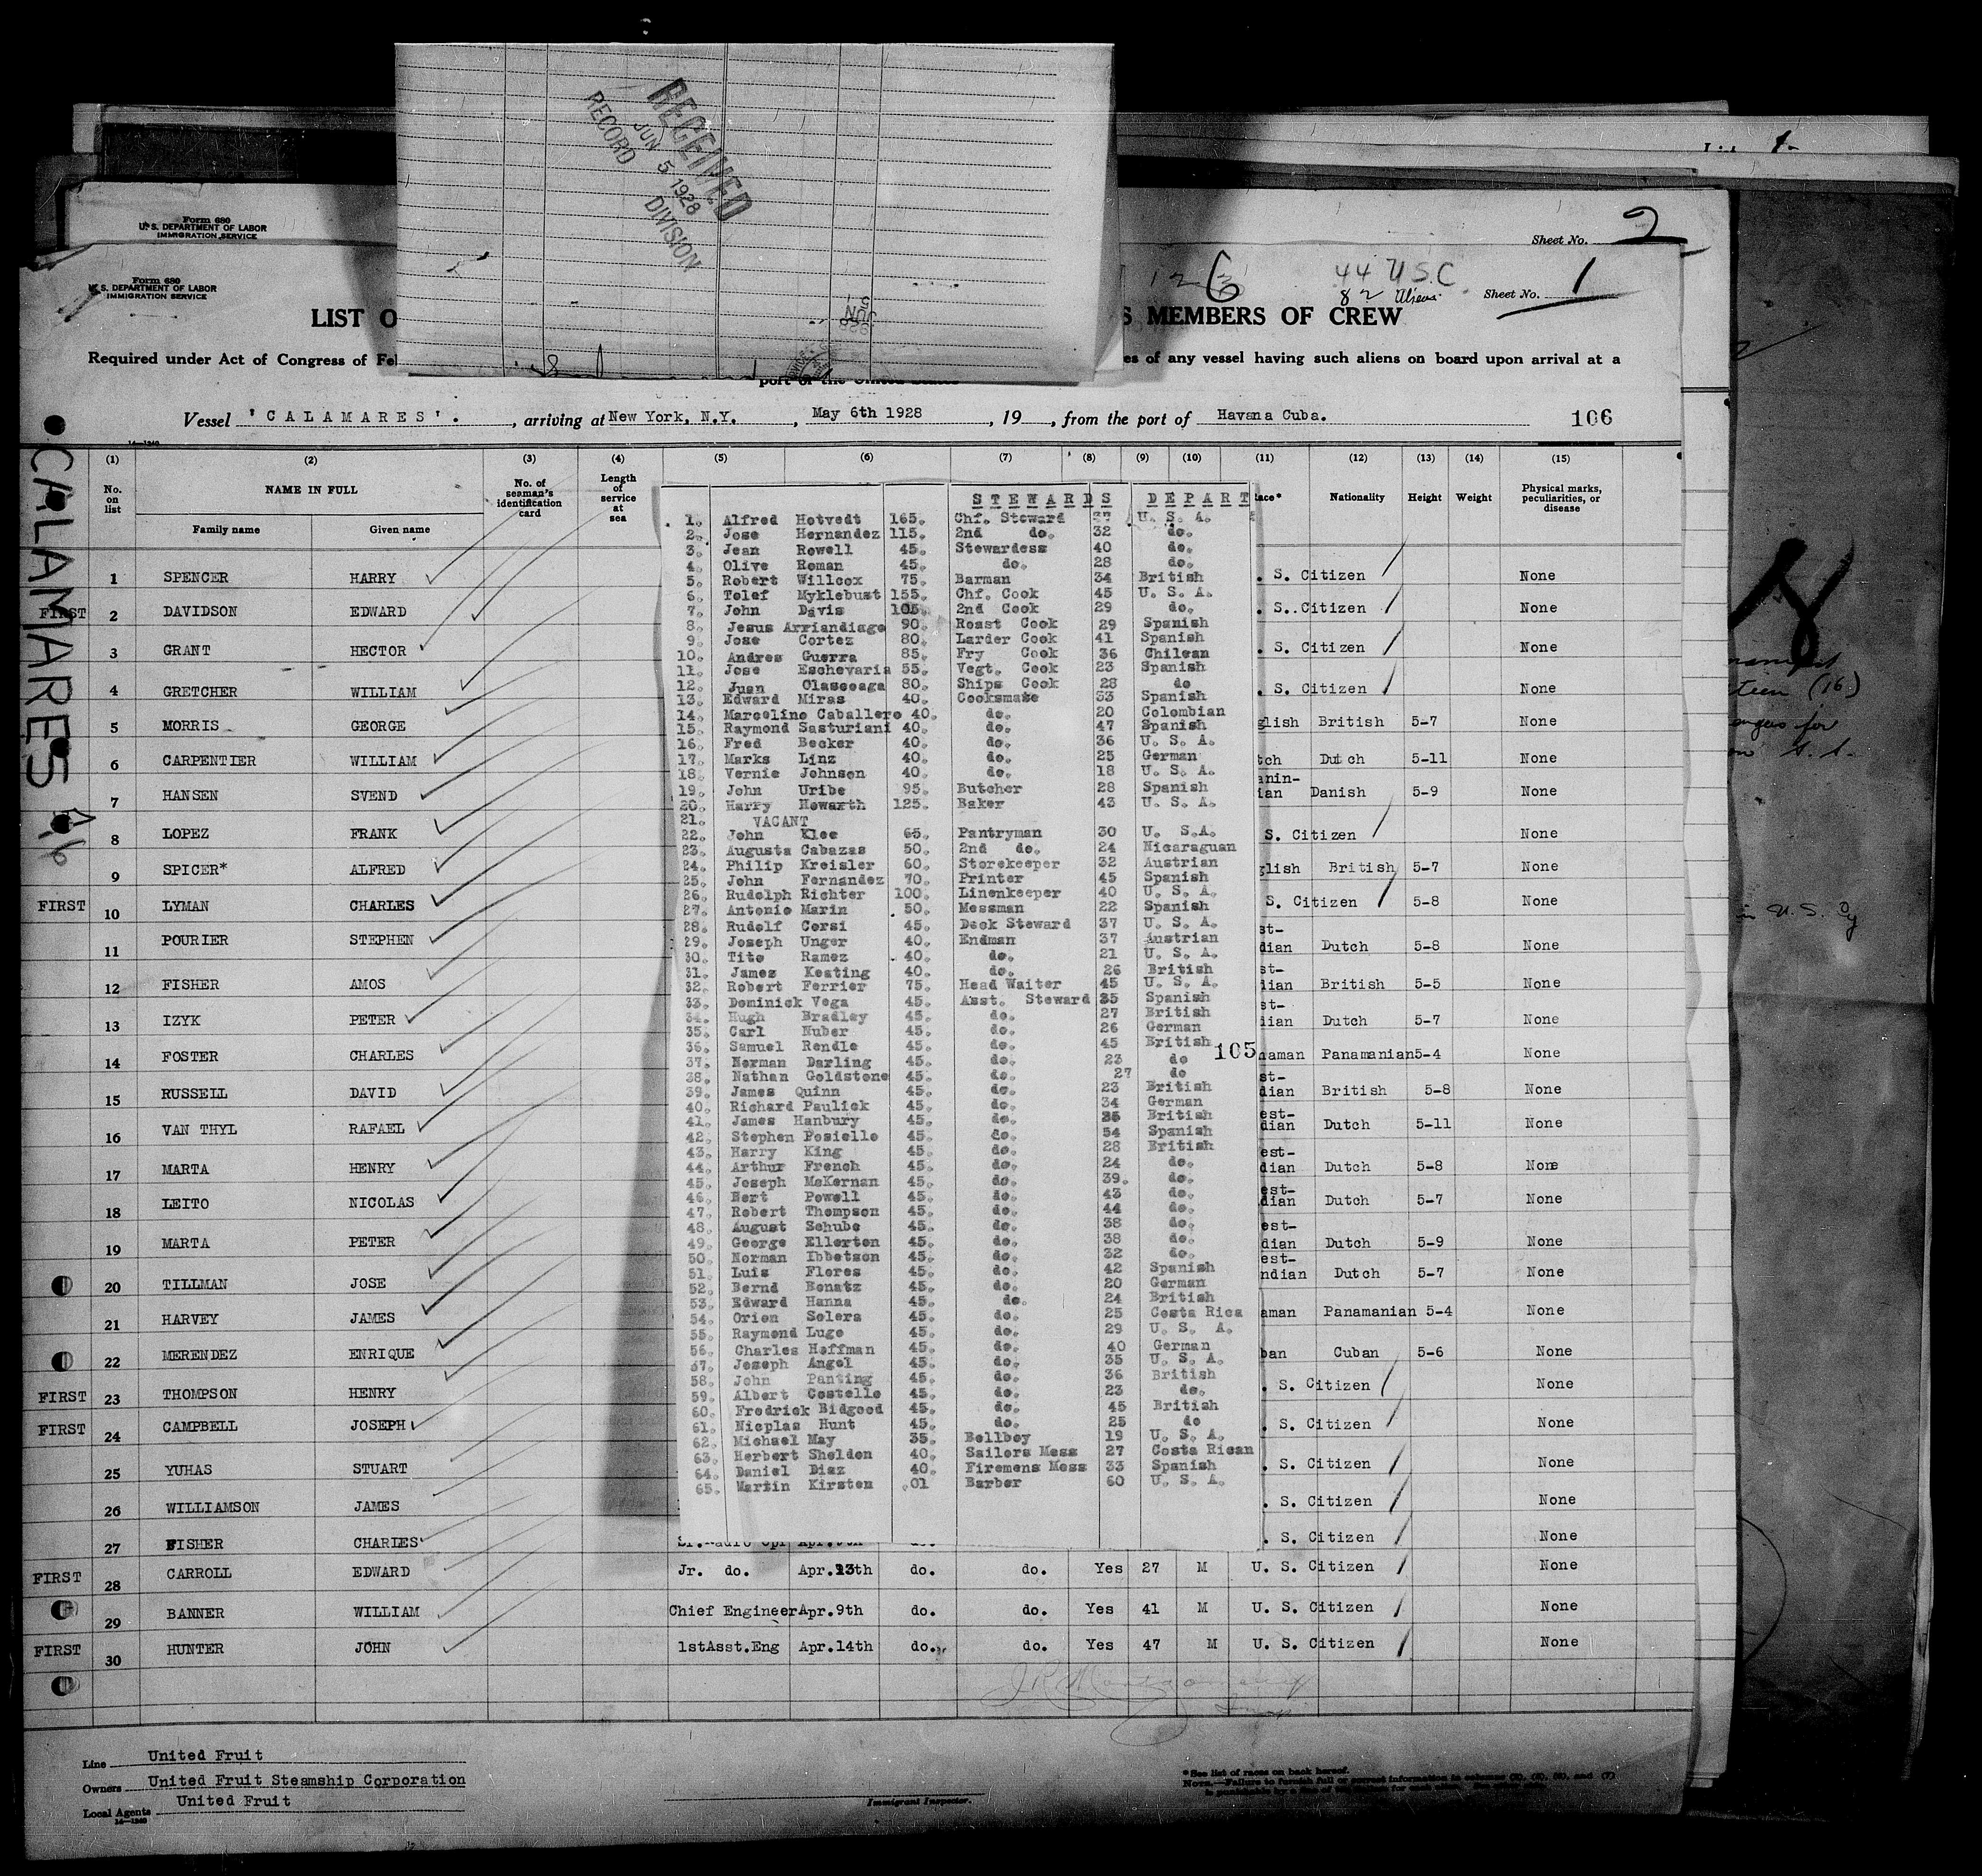 RECEIVED
JUN 5 1928
RECORD DIVISION
Form 680
U. S. DEPARTMENT OF LABOR
IMMIGRATION SERVICE
Sheet No. 2
Form 680
U. S. DEPARTMENT OF LABOR
IMMIGRATION SERVICE
126
44 U.S.C.
82 Aliens
Sheet No. 1
LIST O
S MEMBERS OF CREW
Required under Act of Congress of Fe
es of any vessel having such aliens on board upon arrival at a
port of the United States
Vessel 'CALAMARES'. , arriving at New York, N.Y. , May 6th 1928 , 19 , from the port of Havana Cuba. 106
CALAMARES
(1) (2) (3) (4) (5) (6) (7) (8) (9) (10) (11) (12) (13) (14) (15)
No. on list
NAME IN FULL
Family name Given name
No. of seaman's identification card
Length of service at sea
Nationality Height Weight
Physical marks, peculiarities, or disease
1 SPENCER HARRY . S. Citizen None
FIRST 2 DAVIDSON EDWARD . S. Citizen None
3 GRANT HECTOR . S. Citizen None
4 GRETCHER WILLIAM . S. Citizen None
5 MORRIS GEORGE glish British 5-7 None
6 CARPENTIER WILLIAM tch Dutch 5-11 None
7 HANSEN SVEND anin-ian Danish 5-9 None
8 LOPEZ FRANK S. Citizen None
9 SPICER* ALFRED glish British 5-7 None
FIRST 10 LYMAN CHARLES S. Citizen 5-8 None
11 POURIER STEPHEN st-dian Dutch 5-8 None
12 FISHER AMOS st-dian British 5-5 None
13 IZYK PETER st-dian Dutch 5-7 None
14 FOSTER CHARLES naman Panamanian 5-4 None
15 RUSSELL DAVID st-dian British 5-8 None
16 VAN THYL RAFAEL est-dian Dutch 5-11 None
17 MARTA HENRY est-dian Dutch 5-8 None
18 LEITO NICOLAS est-dian Dutch 5-7 None
19 MARTA PETER est-dian Dutch 5-9 None
20 TILLMAN JOSE est-ndian Dutch 5-7 None
21 HARVEY JAMES aman Panamanian 5-4 None
22 MERENDEZ ENRIQUE ban Cuban 5-6 None
FIRST 23 THOMPSON HENRY . S. Citizen None
FIRST 24 CAMPBELL JOSEPH . S. Citizen None
25 YUHAS STUART . S. Citizen None
26 WILLIAMSON JAMES . S. Citizen None
27 FISHER CHARLES . S. Citizen None
FIRST 28 CARROLL EDWARD Jr. do. Apr.13th do. do. Yes 27 M U. S. Citizen None
29 BANNER WILLIAM Chief Engineer Apr.9th do. do. Yes 41 M U. S. Citizen None
FIRST 30 HUNTER JOHN 1stAsst.Eng Apr.14th do. do. Yes 47 M U. S. Citizen None
STEWARDS DEPART
1. Alfred Hotvedt 165. Chf. Steward 37 U. S. A.
2. Jose Hernandez 115. 2nd do. 32 do.
3. Jean Rowell 45. Stewardess 40 do.
4. Olive Roman 45. do. 28 do.
5. Robert Willcox 75. Barman 34 British
6. Tolef Myklebust 155. Chf. Cook 45 U. S. A.
7. John Davis 105. 2nd Cook 29 do.
8. Jesus Arriandiage 90. Roast Cook 29 Spanish
9. Jose Cortez 80. Larder Cook 41 Spanish
10. Andres Guerra 85. Fry Cook 36 Chilean
11. Jose Eschevaria 55. Vegt. Cook 23 Spanish
12. Juan Olasceaga 80. Ships Cook 28 do
13. Edward Miras 40. Cooksmate 33 Spanish
14. Marcelino Caballero 40. do. 20 Colombian
15. Raymond Sasturiani 40. do. 47 Spanish
16. Fred Becker 40. do. 36 U. S. A.
17. Marks Linz 40. do. 25 German
18. Vernie Johnson 40. do. 18 U. S. A.
19. John Uribe 95. Butcher 28 Spanish
20. Harry Howarth 125. Baker 43 U. S. A.
21. VACANT
22. John Klee 65. Pantryman 30 U. S.A.
23. Augusta Cabazas 50. 2nd do. 24 Nicaraguan
24. Philip Kreisler 60. Storekeeper 32 Austrian
25. John Fernandez 70. Printer 45 Spanish
26. Rudolph Richter 100. Linenkeeper 40 U. S. A.
27. Antonio Marin 50. Messman 22 Spanish
28. Rudolf Corsi 45. Deck Steward 37 U. S. A.
29. Joseph Unger 40. Endman 37 Austrian
30. Tito Ramez 40. do. 21 U. S. A.
31. James Keating 40. do. 26 British
32. Robert Ferrier 75. Head Waiter 45 U. S. A.
33. Dominick Vega 45. Asst. Steward 35 Spanish
34. Hugh Bradley 45. do. 27 British
35. Carl Nuber 45. do. 26 German
36. Samuel Rendle 45. do. 45 British
105
37. Norman Darling 45. do. 23 do
38. Nathan Goldstone 45. do. 27 do
39. James Quinn 45. do. 23 British
40. Richard Paulick 45. do. 34 German
41. James Hanbury 45. do. 35 British
42. Stephen Posielle 45. do. 54 Spanish
43. Harry King 45. do. 28 British
44. Arthur French 45. do. 24 do.
45. Joseph McKernan 45. do. 39. do.
46. Bert Powell 45. do. 43 do.
47. Robert Thompson 45. do. 44 do.
48. August Schube 45. do. 38 do.
49. George Ellerton 45. do. 38 do.
50. Norman Ibbetson 45. do. 32 do.
51. Luis Flores 45. do. 42 Spanish
52. Bernd Bonatz 45. do. 20 German
53. Edward Hanna 45. do. 24 British
54. Orion Solera 45. do. 25 Costa Rica
55. Raymond Lugo 45. do. 29 U. S. A.
56. Charles Hoffman 45. do. 40 German
57. Joseph Angel 45. do. 35 U. S. A.
58. John Panting 45. do. 36 British
59. Albert Costello 45. do. 23 do.
60. Fredrick Bidgood 45. do. 45 British
61. Nicplas Hunt 45. do. 25 do
62. Michael May 35. Bellboy 19 U. S. A.
63. Herbert Sheldon 40. Sailors Mess 27 Costa Rican
64. Daniel Diaz 40. Firemens Mess 33 Spanish
65. Martin Kirsten .01 Barber 60 U. S. A.
Line United Fruit
Owners United Fruit Steamship Corporation
Local Agents United Fruit
14—1240
Immigrant Inspector.
*See list of races on back hereof.